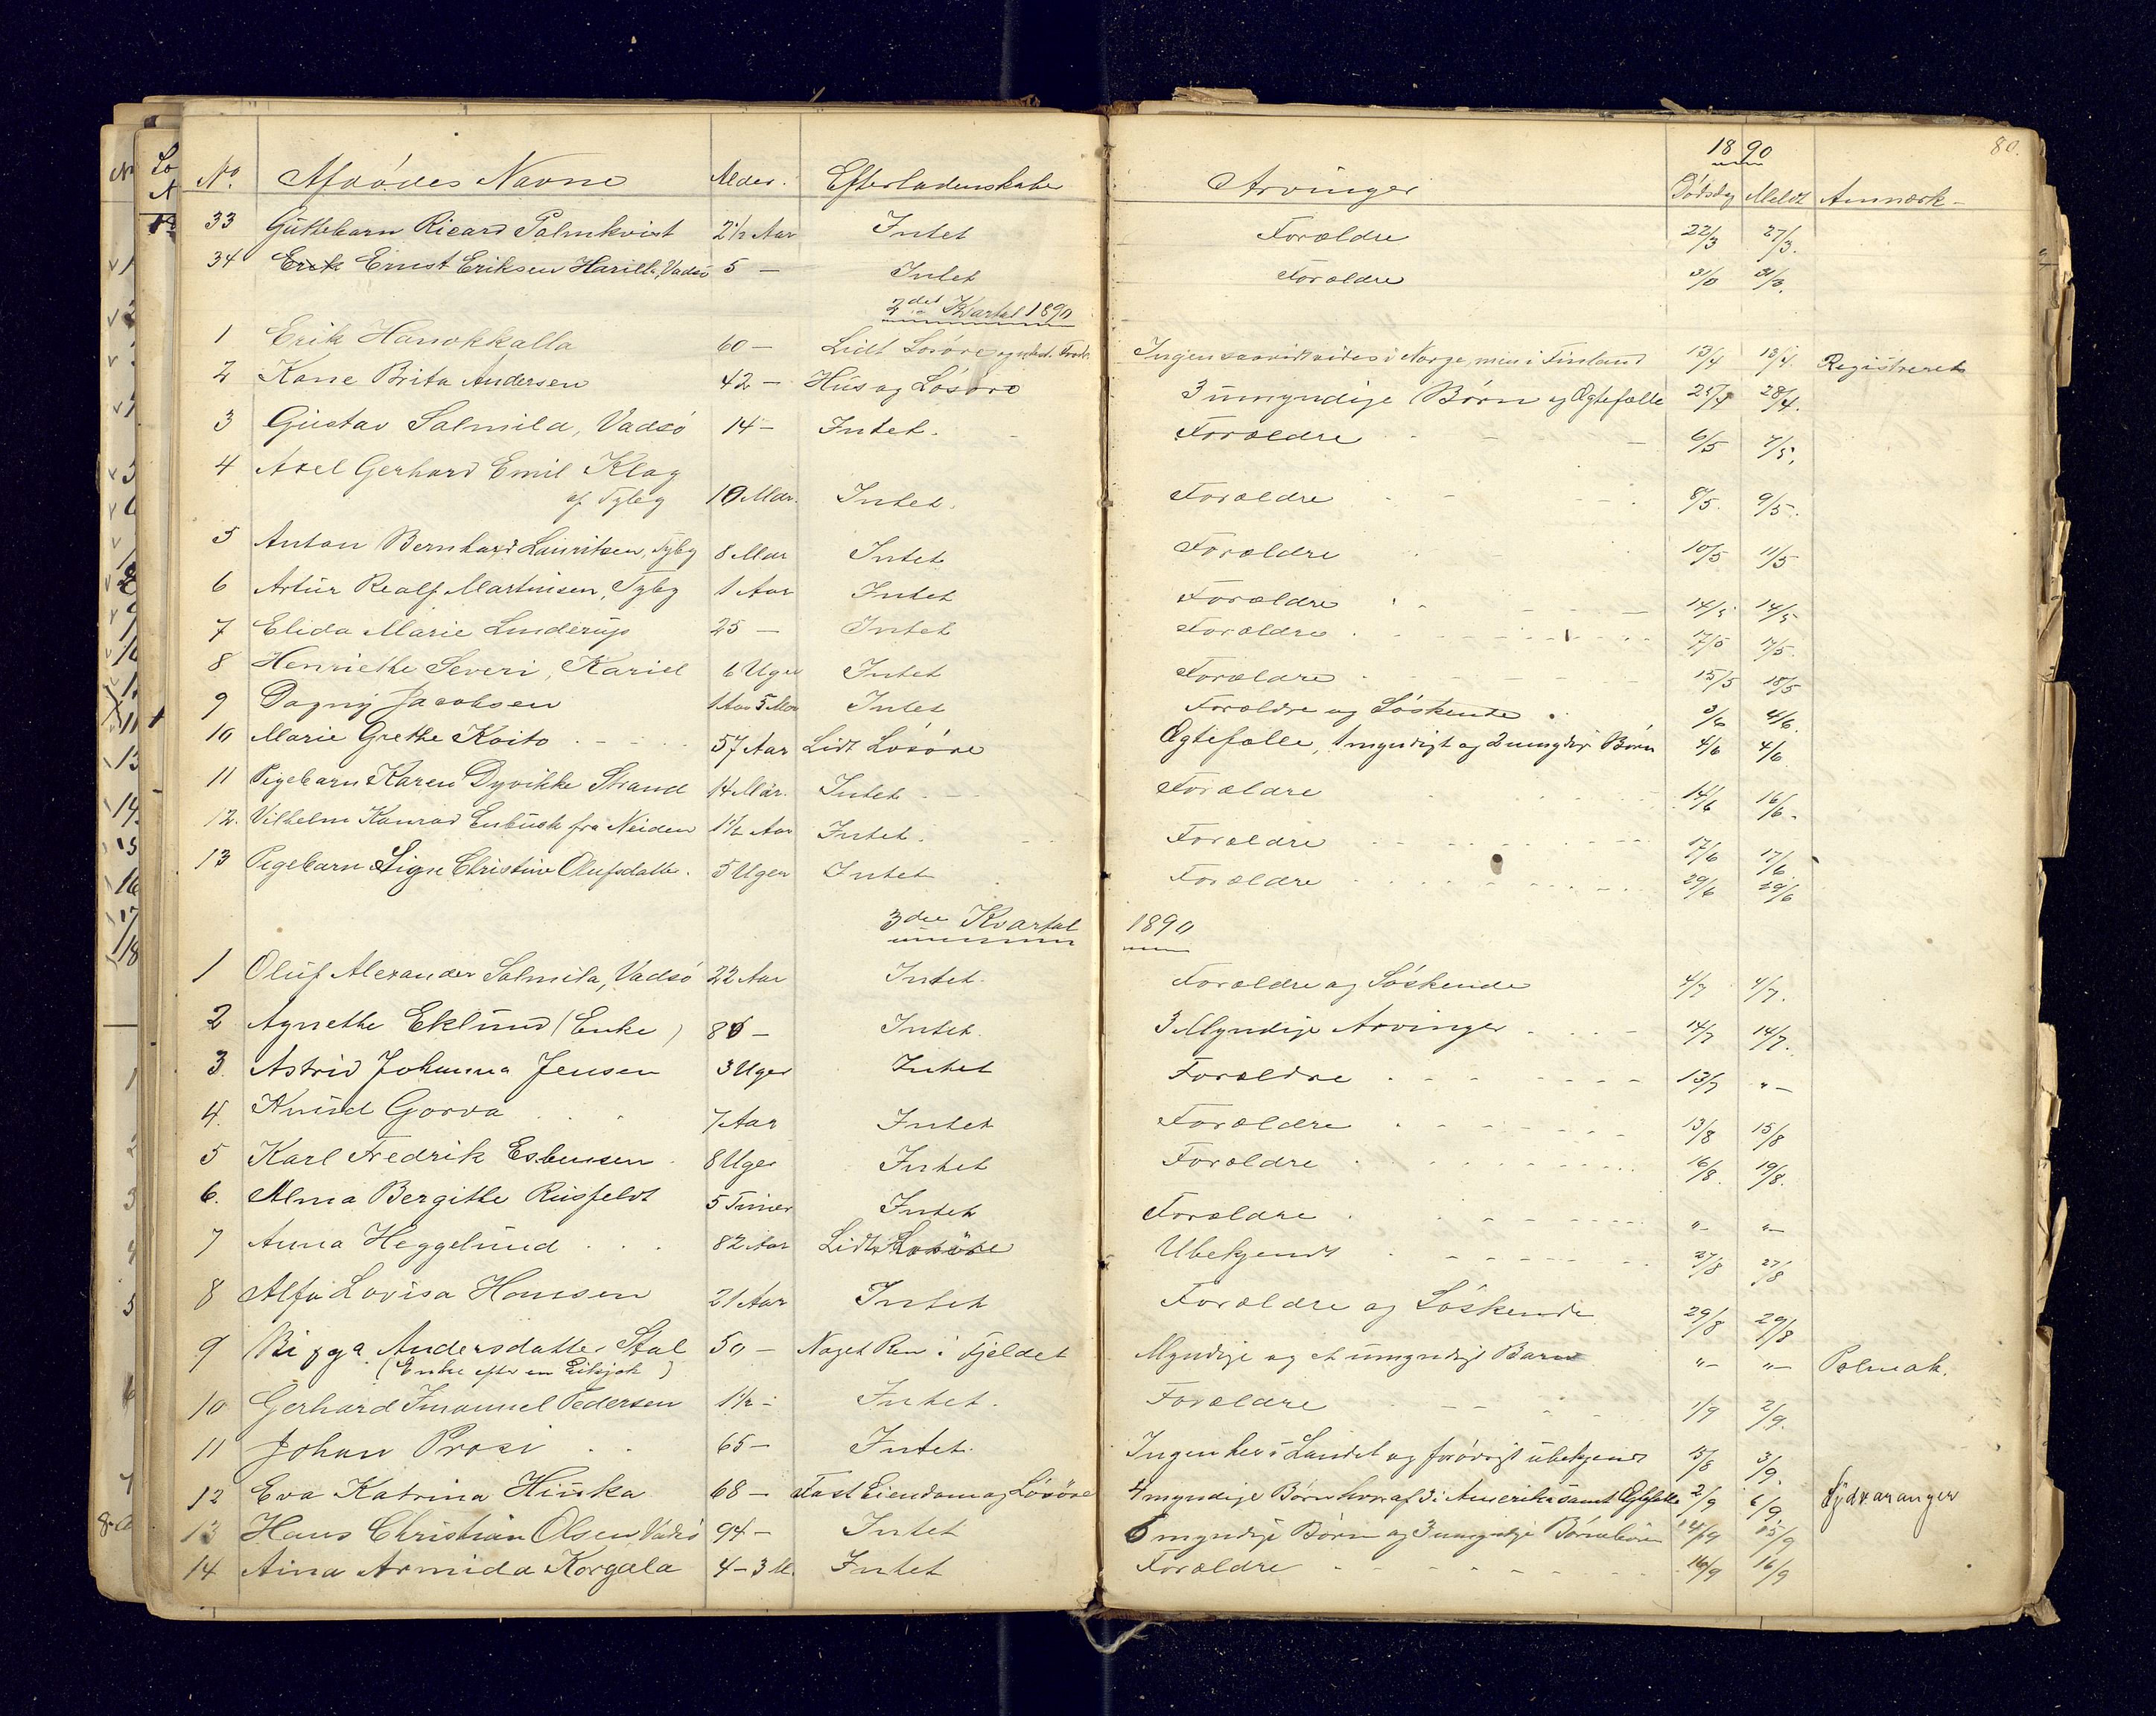 1890 80.
No. Afdødes Navne Alder. Efterladenskaber Arvinger Dödsdag Meldt Anmærk-
33 Guttebarn Ricard Palmkvist 2 1/2 Aar Intet Forældre 22/3 27/3.
34 Erik Ernst Eriksen Harilla, Vadsö 5 — Intet Forældre 31/3 31/3.
2det Kvartal 1890
1 Erik Hanokkalla 60 — Lidt Lösöre Ingen saavidt vides i Norge, men i Finland 13/4 13/4. Registreret
2 Kone Brita Andersen 42 — Hus og Lösöre 3 umyndige Börn og Ægtefælle 25/4 28/4.
3 Gustav Salmila, Vadsö 14 — Intet. Forældre 6/5 7/5.
4 Axel Gerhard Emil Klag
af Tyby 10 Mdr. Intet. Forældre 8/5. 9/5.
5 Anton Bernhard Lauritsen, Tyby 8 Mdr Intet Forældre 10/5 11/5
6 Artur Realf Martinsen, Tyby 1 Aar Intet Forældre 14/5 14/5
7 Elida Marie Linderup 25 — Intet Forældre 17/5 17/5.
8 Henriette Severi, Kariel 6 Uger Intet Forældre 15/5 18/5
9 Dagny Jacobsen 1 Aar 5 Mdr Intet Forældre og Söskende 3/6 4/6.
10 Marie Grethe Koito 57 Aar Lidt Lösöre Ægtefælle, 1 myndigt og 2 umyndige Börn 4/6 4/6
11 Pigebarn Karen Dyvikke Strand 14 Mdr. Intet Forældre 14/6 16/6.
12. Vilhelm Konrad Enbusk fra Neiden 1 1/2 Aar Intet. Forældre 17/6 17/6.
13 Pigebarn Signe Christine Olufsdatter. 5 Uger Intet Forældre 29/6 29/6
3die Kvartal 1890
1 Oluf Alexander Salmila, Vadsö 22 Aar Intet. Forældre og Söskende 4/7 4/7.
2 Agnethe Eklund (Enke) 85 — Intet. 3 Myndige Arvinger 14/7 14/7.
3. Astrid Johanna Jensen 3 Uger Intet Forældre 13/7 "—
4. Knud Gorva 7 Aar Intet Forældre 13/8 15/8
5 Karl Fredrik Esbensen 8 Uger Intet Forældre 16/8. 19/8.
6. Alma Bergitte Rusfeldt 5 Timer Intet Forældre "— "—
7 Anna Heggelund 82 Aar Lidt Lösöre Ubekjendt 27/8 27/8
8 Alfa Lovisa Hansen 21 Aar Intet Forældre og Söskende 29/8 29/8
9 Birga Andersdatter Stal 50 — Noget Ren i Fjeldet Myndige og et umyndigt Barn "— "— Polmak.
(Enke efter en )
10 Gerhard Imanuel Pedersen 1 1/2 — Intet. Forældre 1/9 2/9.
11 Johan Prosi 65 — Intet. Ingen her i Landet og forövrigt ubekjendt 15/8 3/9.
12 Eva Katrina Hiuka 68 — Fast Eiendom og Lösöre 4 myndige Börn hvoraf 3 i Amerika samt Ægtefælle 2/9 6/9. Sydvaranger
13 Hans Christian Olsen Vadsö 94 — Intet 6 myndige Börn og 3 umyndige Börnebörn 14/9 15/9
14 Aina Armida Korgala 4 — 3 M. Intet Forældre 16/9 16/9